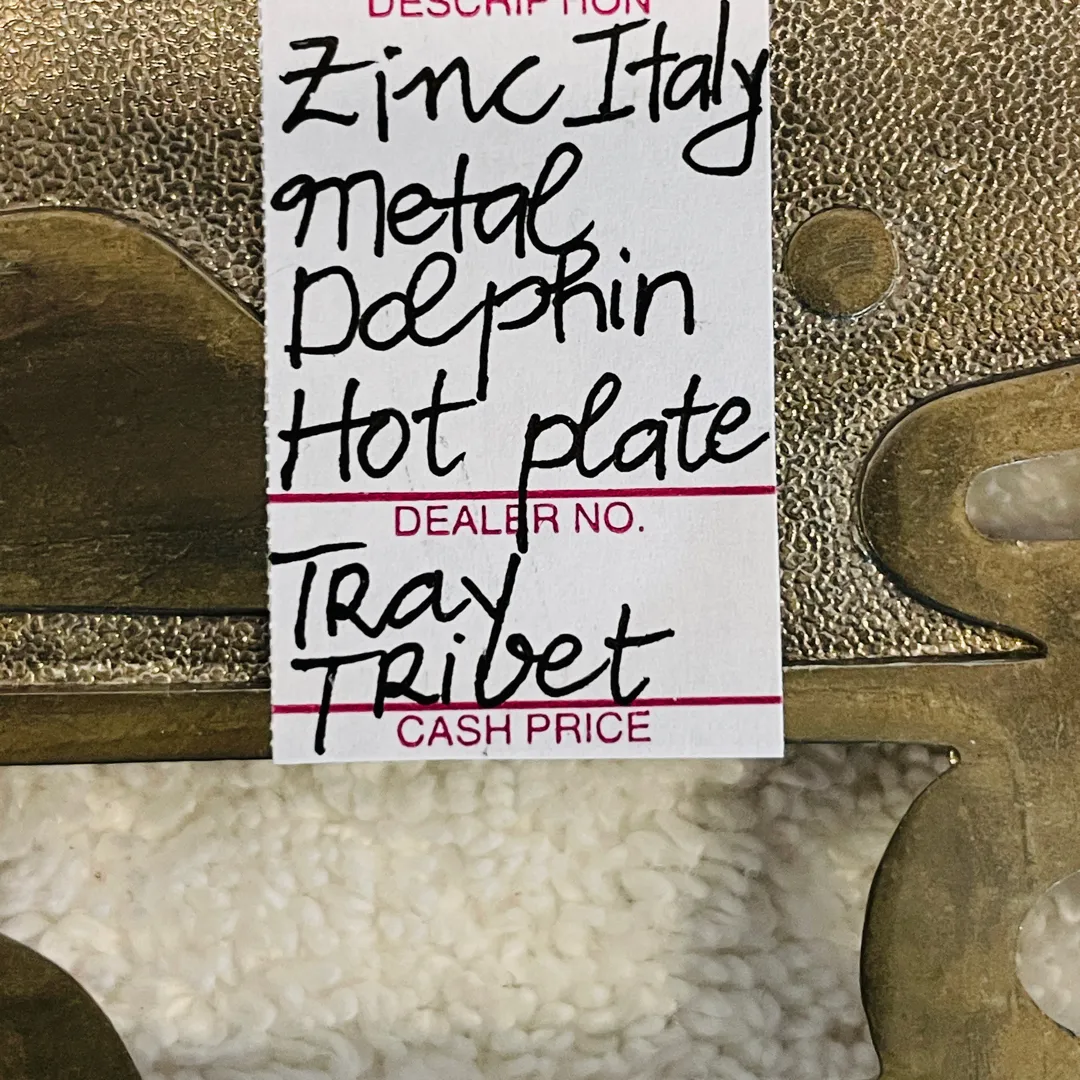 DESCRIPTION
Zinc Italy
Metal
Dolphin
Hot plate
DEALER NO.
TRay
TRivet
CASH PRICE